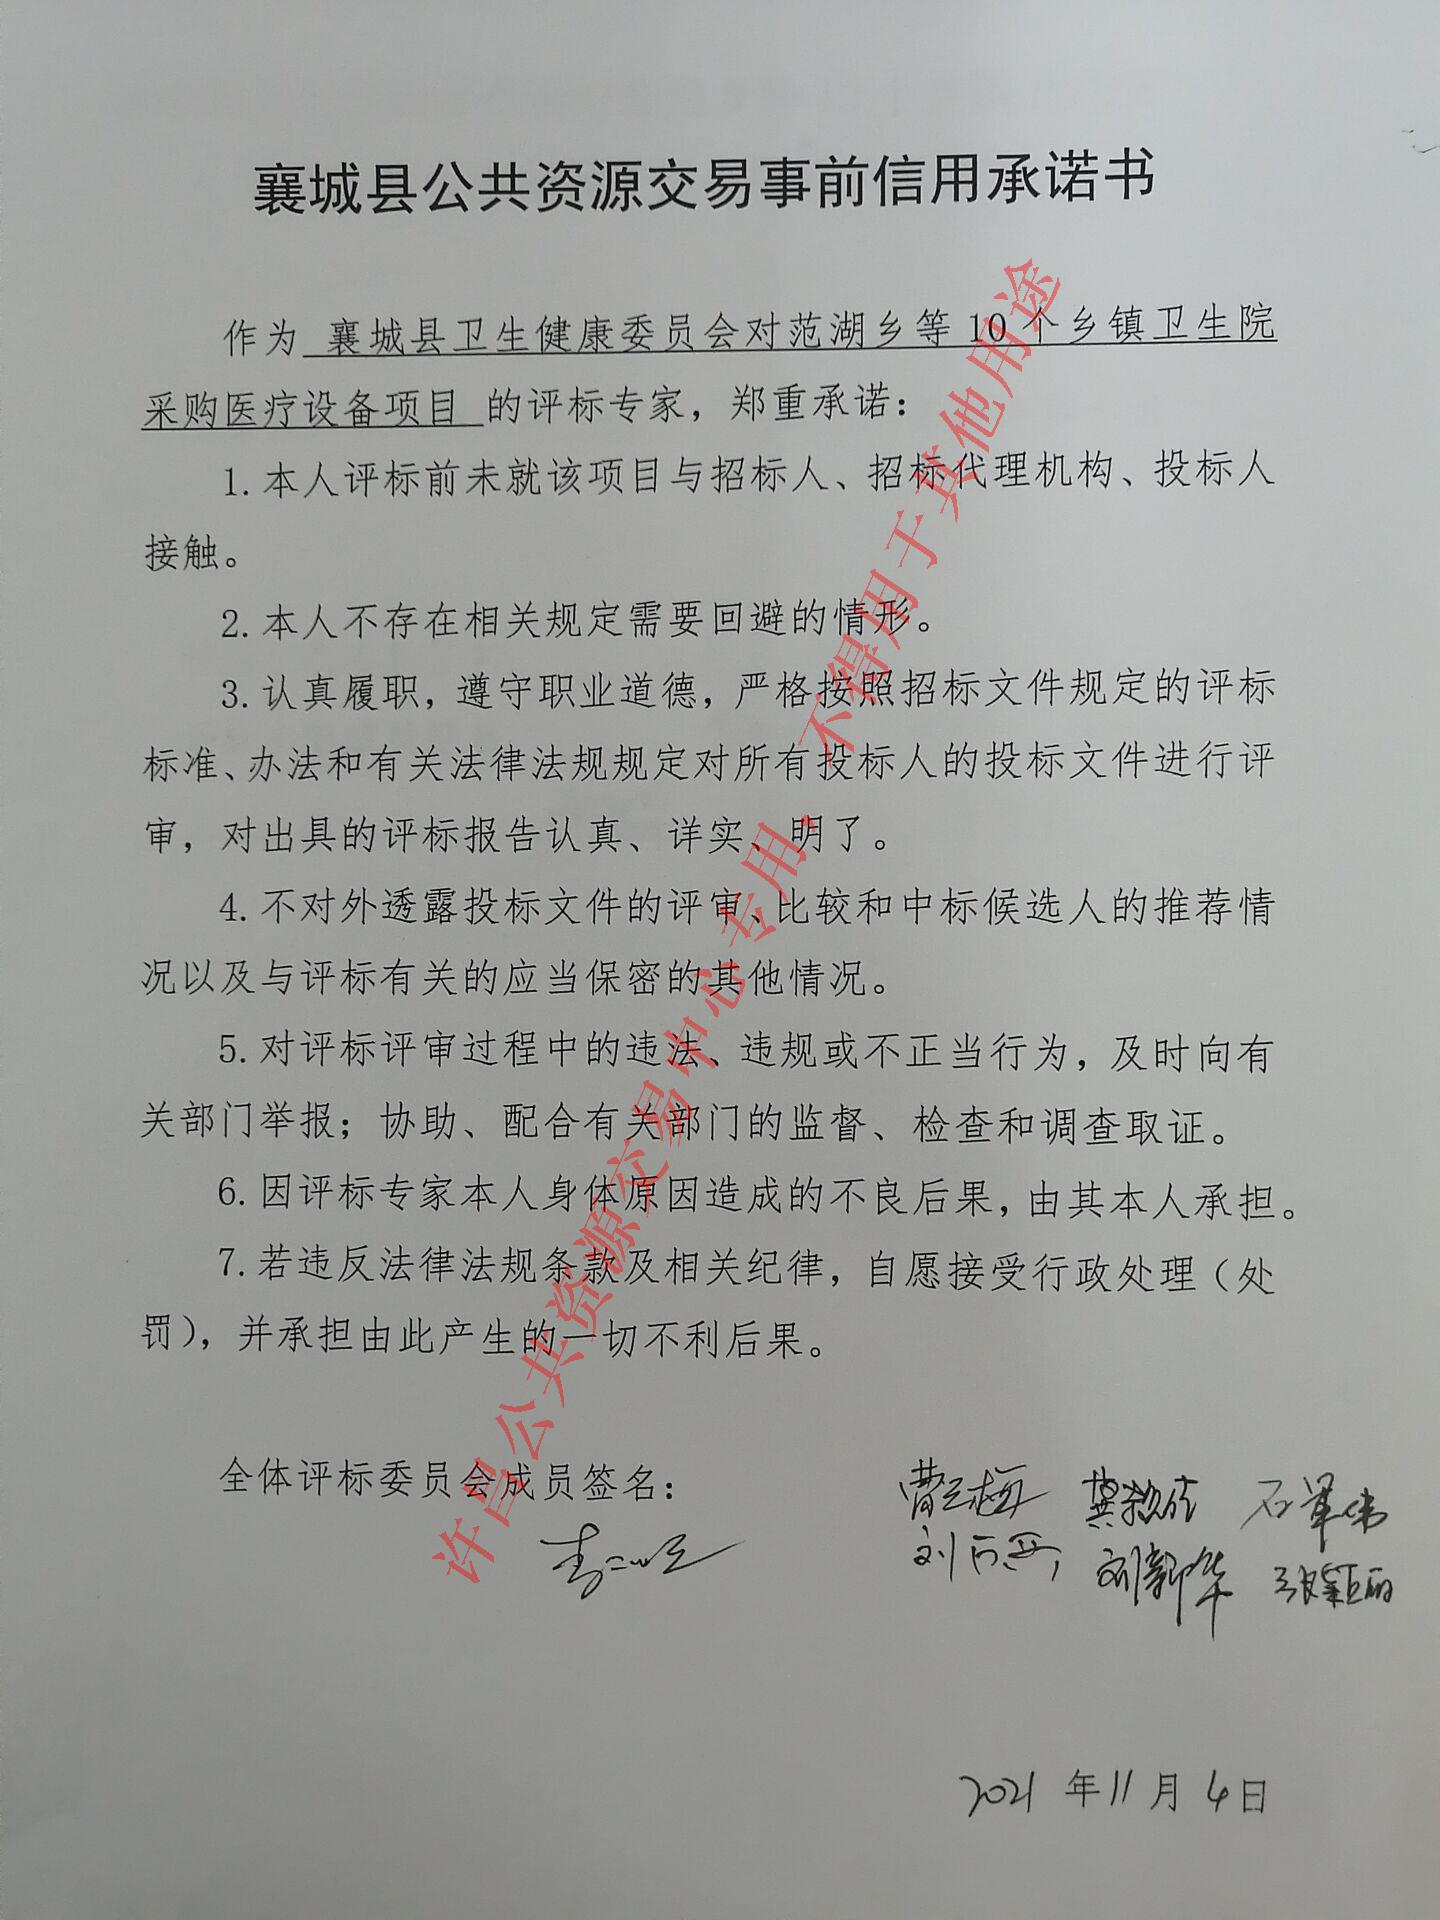 襄城县公共资源交易事前信用承诺书
作为 襄城县卫生健康委员会对范湖乡等10个乡镇卫生院
采购医疗设备项目 的评标专家，郑重承诺：
1.本人评标前未就该项目与招标人、招标代理机构、投标人
接触。
2.本人不存在相关规定需要回避的情形。
3.认真履职，遵守职业道德，严格按照招标文件规定的评标
标准、办法和有关法律法规规定对所有投标人的投标文件进行评
审，对出具的评标报告认真、详实、明了。
4.不对外透露投标文件的评审、比较和中标候选人的推荐情
况以及与评标有关的应当保密的其他情况。
5.对评标评审过程中的违法、违规或不正当行为，及时向有
关部门举报；协助、配合有关部门的监督、检查和调查取证。
6.因评标专家本人身体原因造成的不良后果，由其本人承担。
7.若违反法律法规条款及相关纪律，自愿接受行政处理（处
罚），并承担由此产生的一切不利后果。
全体评标委员会成员签名：
刘新华 张颖丽
2021 年 11 月 4 日
许昌公共资源交易中心专用，不得用于其他用途